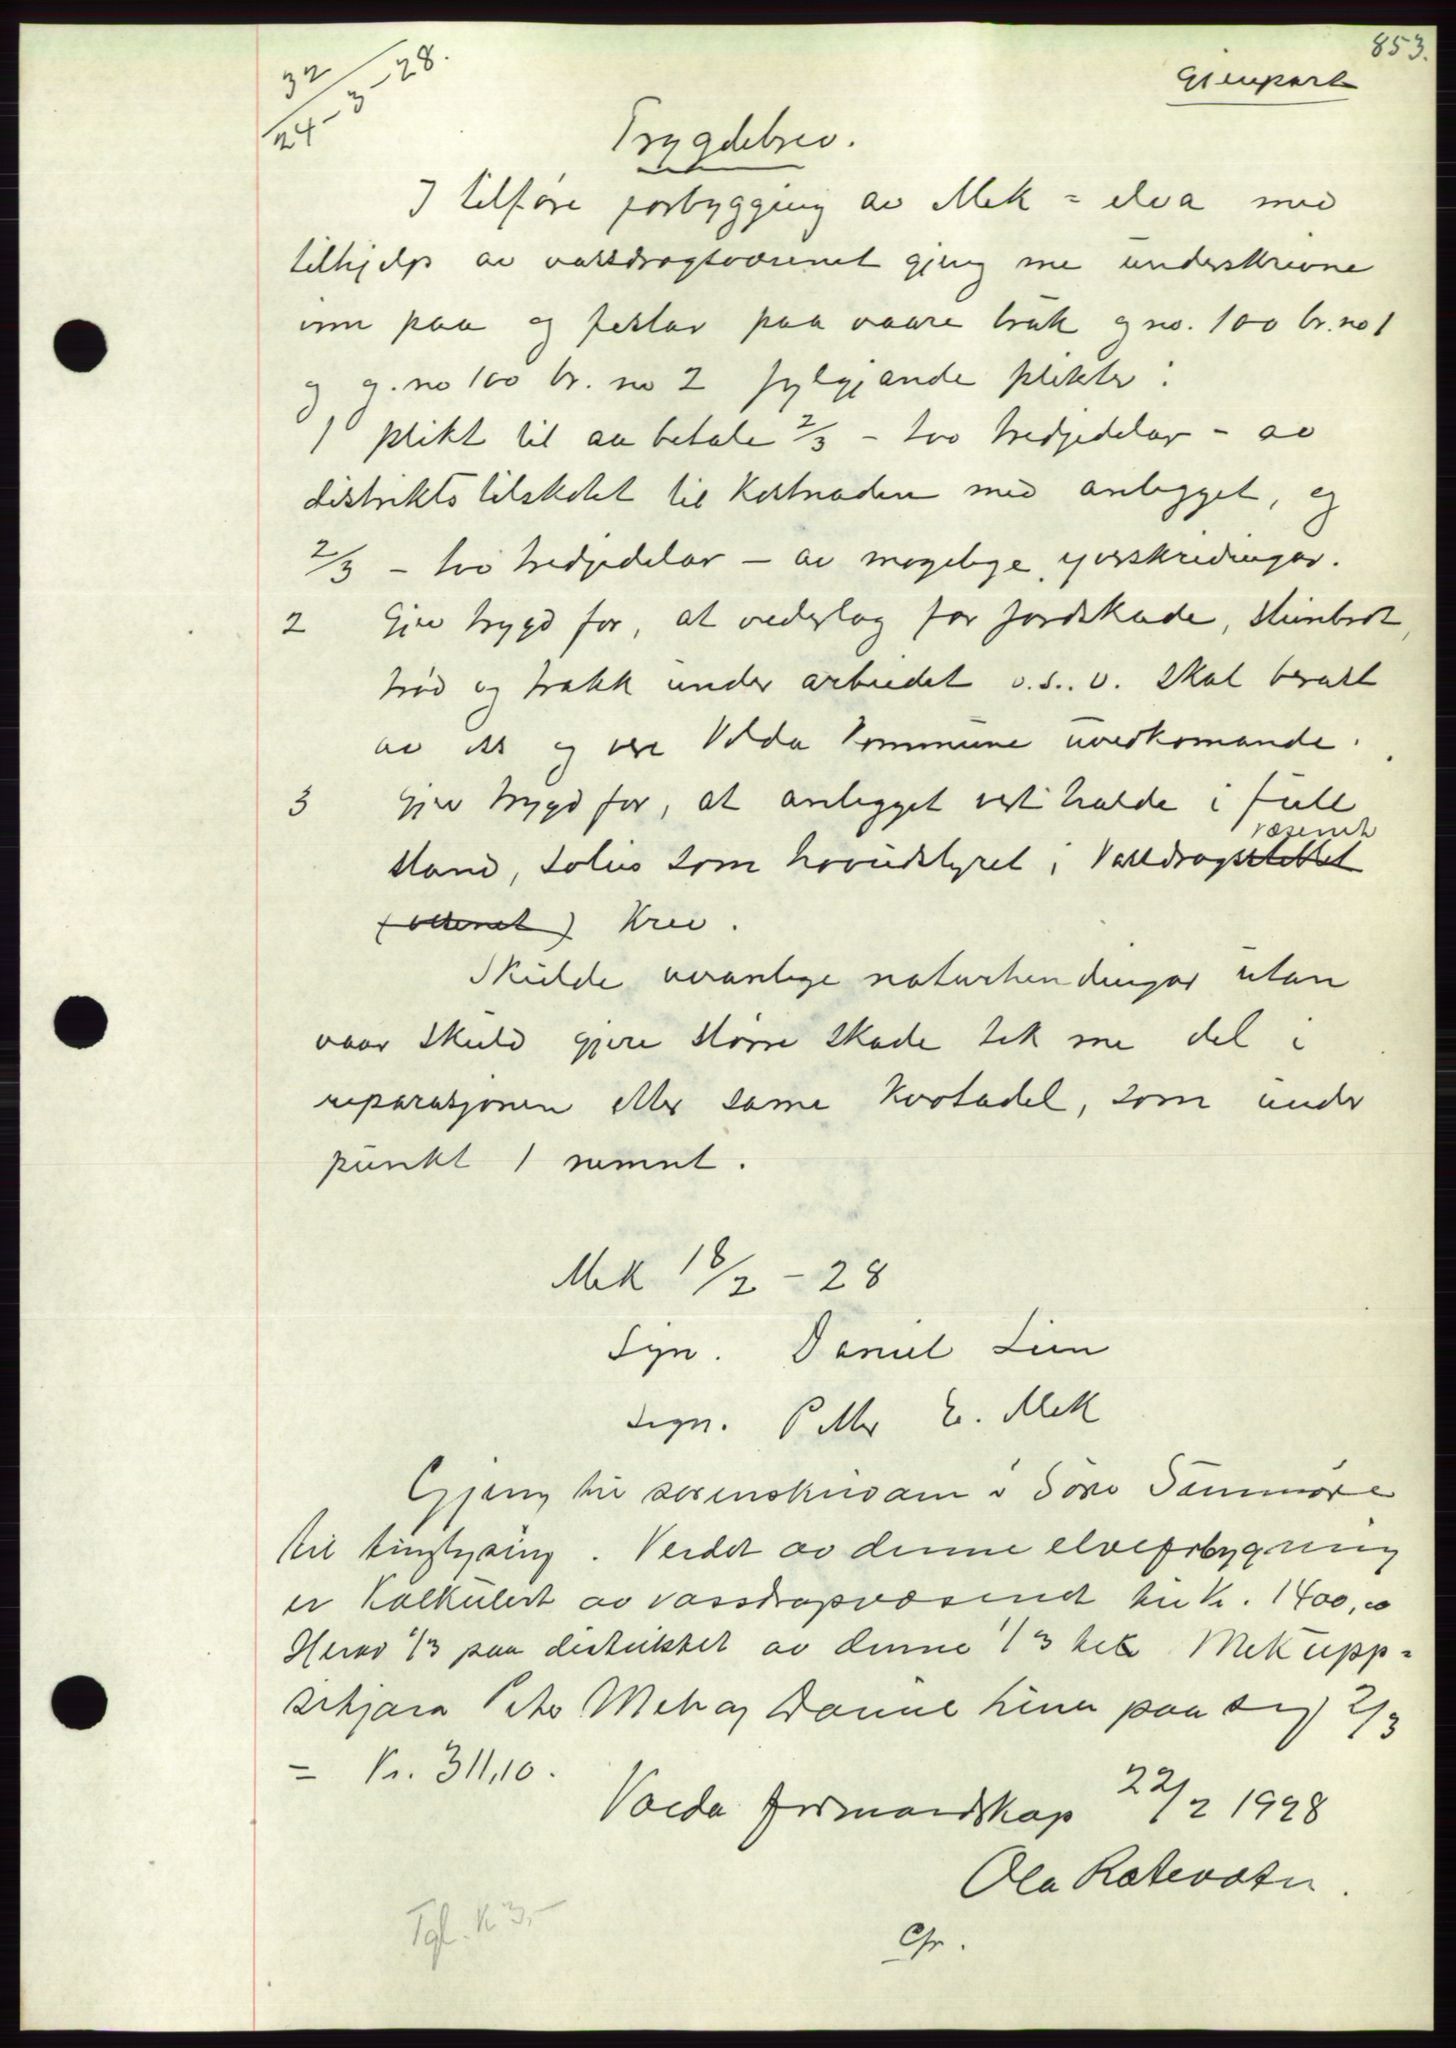 853.
32
24-3-28.
Gjenpart
Trygdebrev.
I tilføre forbygging av Mek = elva med
tilhjelp av vassdragsvæsenet gjeng me underskrivne
inn paa og festar paa vaare bruk g no. 100 br. no 1
og g. no 100 br. no 2 fylgjande plikter:
1 plikt til aa betale 2/3 - tvo tredjedelar - av
distriktstilskotet til kostnaden med anlegget, og
2/3 - tvo tredjedelar - av mogelege yverskridingar.
2 Gjev trygd for, at vederlag for jordskade, steinbrot,
trød og trakk under arbeidet o.s.v. skal berast
av oss og vere Volda kommune uvedkomande.
3 Gjev trygd for, at anlegget vert halde i full
stand, soleis som hovudstyret i Vassdragsetatet væsenet
(væsenet) krev.
Skulde uvanlege naturhendingar utan
vaar skuld gjere større skade tek me del i
reparasjonen etter same kvotadel, som under
punkt 1 nemnt.
Mek 18/2 - 28
Sign. Daniel Lien
sign. Petter E. Mek
Gjeng til sorenskrivaren i Søre Sunnmøre
til tinglysing. Verdet av denne elveforbygning
er kalkulert av vassdragsvæsenet til Kr. 1400,00
Herav 1/3 paa distriktet av denne 1/3 tek Mek upp-
sitjara Peter Mek og Daniel Lien paa seg 2/3
= Kr. 311,10.
Volda formandskap 22/2 1928
Ola Røtevatn.
Cfr.
Tgl. K 3,-